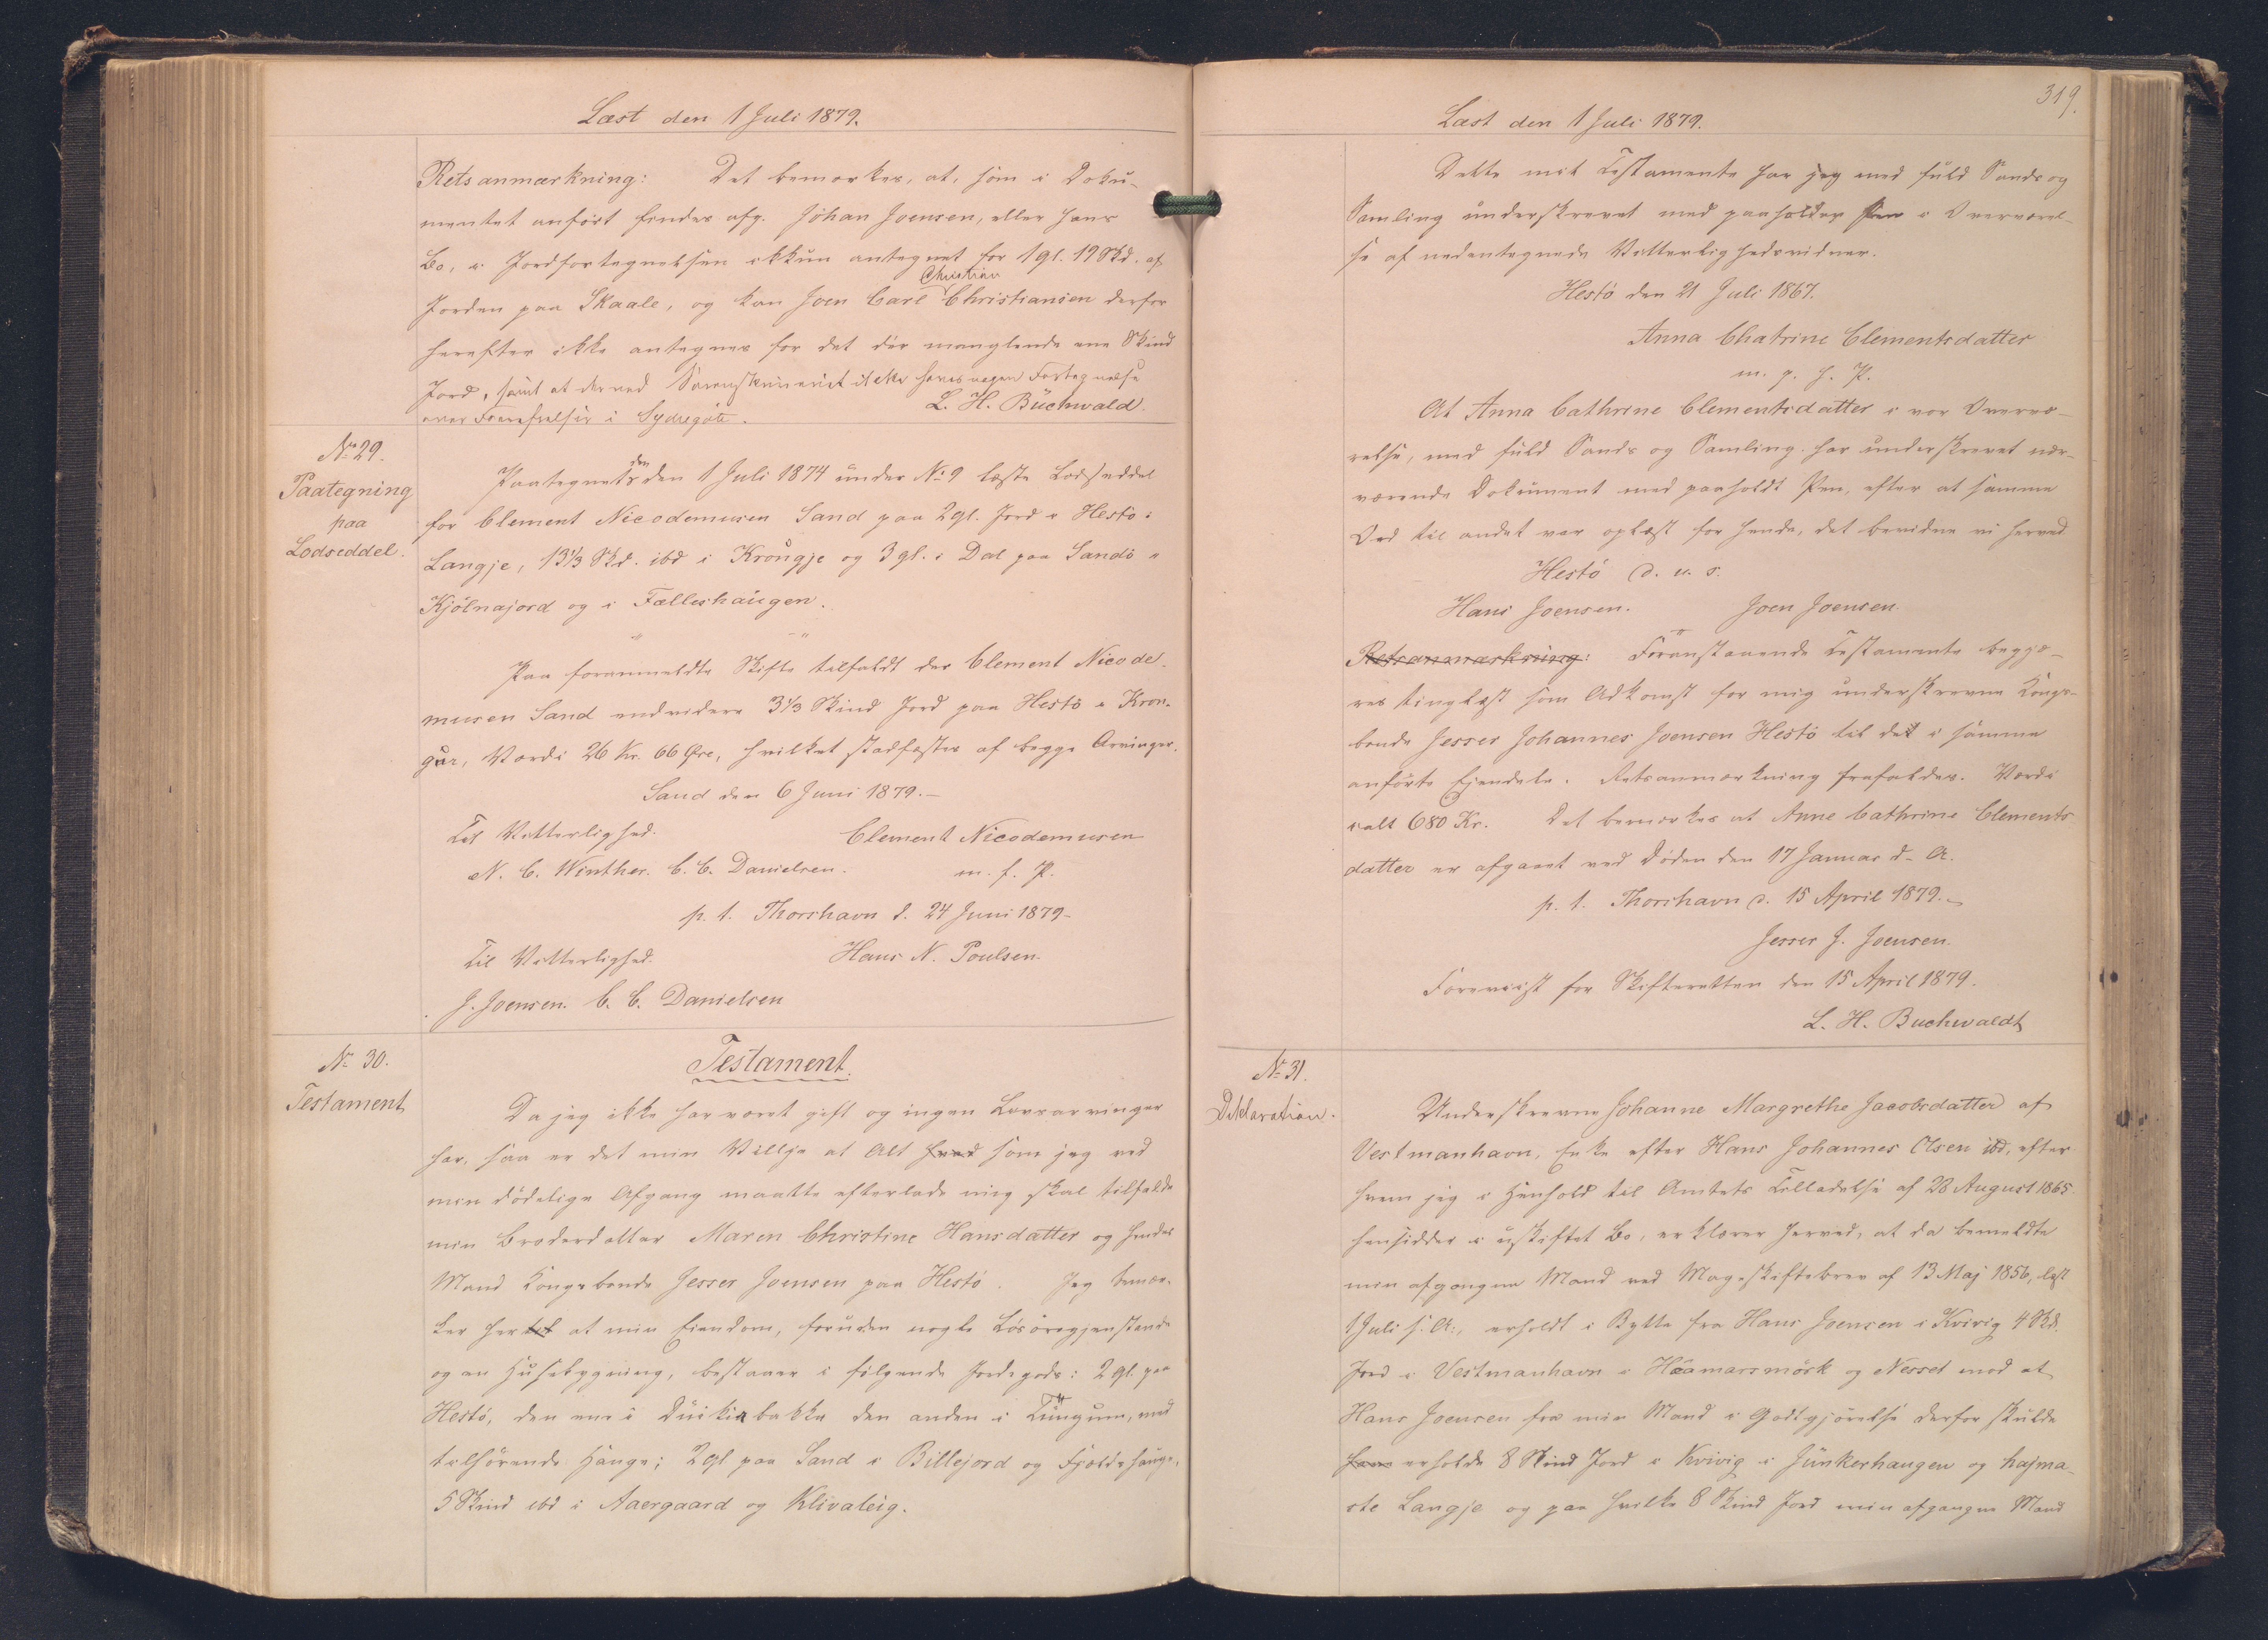 Læst den 1 Juli 1879.
Retsanmærkning: Det bemærkes, at, som i Doku-
mentet anført findes afg. Johan Joensen, eller hans
Bo, i Jordfortegnelsen ikkun antegnet for 1 gl. 19 Skd. af
Christian
Jorden paa Skaale, og kan Joen Carl Christiansen derfor
herefter ikke antegnes for det dér manglende ene Skind
Jord, samt at der ved Sorenskriveriet ikke haves nogen Fortegnelse
over Fæstefrelser i Sydregøte. L. H. Buchwald.
No 29.
Paategning
paa
Lodseddel.
den
Paategnet den 1 Juli 1874 under No 9 læste Lodseddel
for Clement Nicodemusen Sand paa 2 gl. Jord i Hestø i
Langje, 13 1/3 Skd. ibd i Krougje og 3 gl. i Dal paa Sandø i
Kjölnajord og i Fælleshaugen.
" - "
Paa foranmeldte Skifte tilfaldt der Clement Nicode-
musen Sand endvidere 3 1/3 Skind Jord paa Hestø i Kron-
gür, Værdi 26 Kr. 66 Øre, hvilket stadfæstes af begge Arvinger.
Sand den 6 Juni 1879.-
Til Vitterlighed. Clement Nicodemusen
N. C. Winther. C. C. Danielsen. m. f. P.
p. t. Thorshavn d. 24 Juni 1879-
Til Vitterlighed. Hans N. Poulsen.
J. Joensen. C. C. Danielsen
No 30.
Testament
Testament.
Da jeg ikke har været gift og ingen Livsarvinger
har, saa er det min Villje at Alt hvad som jeg ved
min dødelige Afgang maatte efterlade mig skal tilfalde
min Broderdatter Maren Christine Hansdatter og hendes
Mand Kongsbonde Jesser Joensen paa Hestø. Jeg bemær-
ker hertil at min Eiendom, foruden nogle Løsøregjenstande
og en Husebygning, bestaaer i følgende Jordegods: 2 gl. paa
Hestø, den ene i Düikiabakka den anden i Tüngum, med
tilhørende Hauge; 2 gl paa Sand i Billejord og Fjøldehauge,
5 Skind ibd i Aaergaard og Klivaleig.
319.
Læst den 1 Juli 1879.
Dette mit Testamente har jeg med fuld Sands og
Samling underskrevet med paaholden Pen i Overværel-
se af nedentegnede Vitterlighedsvidner.
Hestø den 21 Juli 1867.
Anna Chatrine Clementsdatter
m. p. h. P.
At Anna Cathrine Clementsdatter i vor Overvæ-
relse, med fuld Sands og Samling har underskrevet nær-
værende Dokument med paaholdt Pen, efter at samme
Ord til andet var oplæst for hende, det bevidne vi herved
Hestø d. u. s.
Hans Joensen. Joen Joensen.
Retsanmærkning: Foranstaaende Testamente begjæ-
res tinglæst som Adkomst for mig underskrevne Kongs-
bonde Jesser Johannes Joensen Hestø til det i samme
anførte Eiendele. Retsanmærkning frafaldes. Værdi
ialt 680 Kr. Det bemærkes at Anne Cathrine Clements
datter er afgaaet ved Døden den 17 Januar d. A.
p. t. Thorshavn d. 15 April 1879.-
Jesser J. Joensen.
Foreviist for Skifteretten den 15 April 1879.
L. H. Buchwaldt
No 31.
Deklaration.
Underskrevne Johanne Margrethe Jacobsdatter af
Vestmanhavn, Enke efter Hans Johannes Olsen ibd, efter
hvem jeg i Henhold til Amtets Tilladelse af 28 August 1865
hensidder i uskiftet Bo, erklærer herved, at da bemeldte
min afgangne Mand ved Mageskiftebrev af 13 Maj 1856, læst
1 Juli s. A., erholdt i Bytte fra Hans Joensen i Kvivig 4 Skd.
Jord i Vestmanhavn i Haamarsmörk og Nesset mod at
Hans Joensen fra min Mand i Godtgjørelse derfor skulde
ham erholde 8 Skind Jord i Kvivig i Jünkerhaugen og hajma-
ste Langje og paa hvilke 8 Skind Jord min afgangne Mand